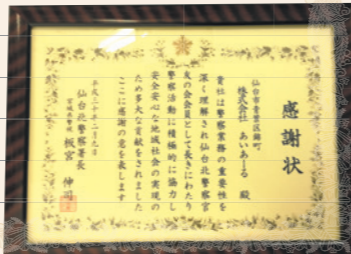 感謝状
仙台市青葉区錦町
株式会社 あいあーる 殿
貴社は警察業務の重要性を
深く理解され仙台北警察官
友の会会員として長きにわたり
警察活動に積極的に協力し
安全安心な地域社会の実現の
ため多大な貢献をされました
ここに感謝の意を表します
平成三十年二月九日
宮城県警視
仙台北警察署長
板宮